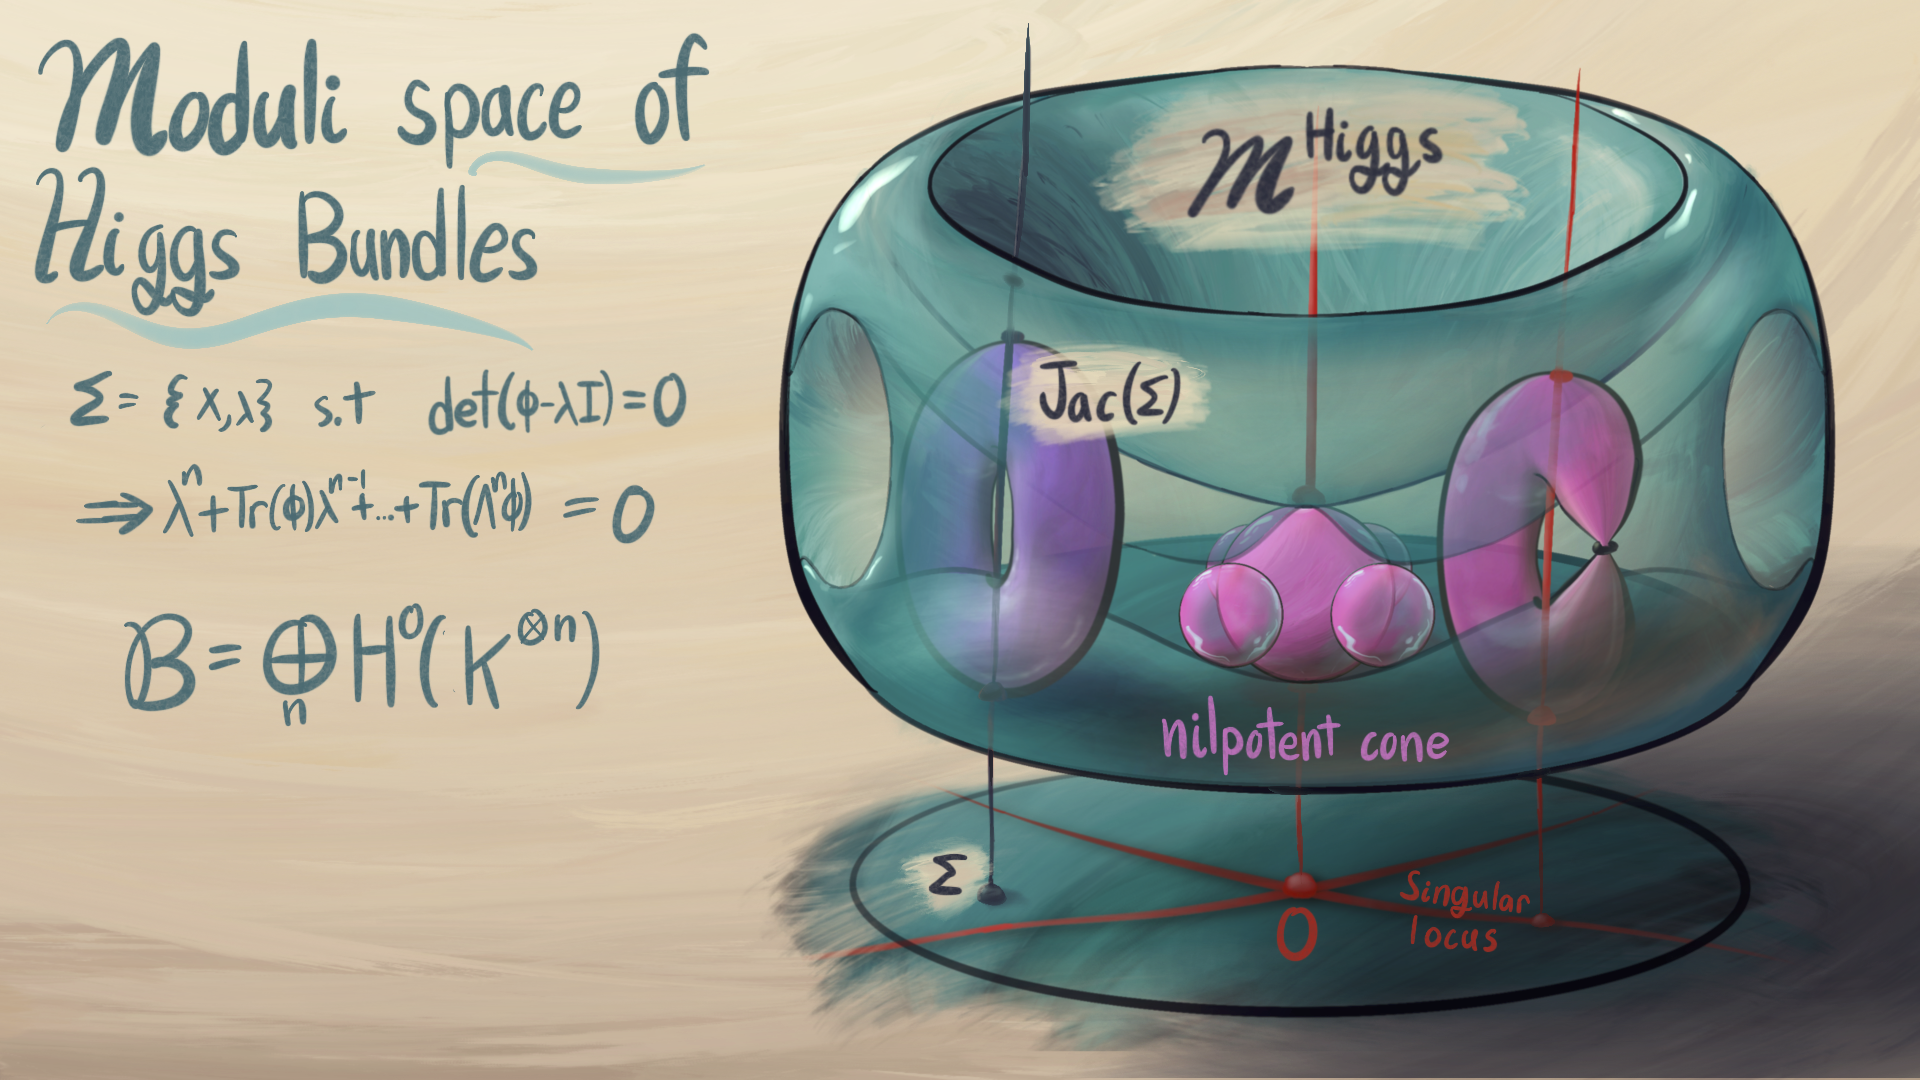 Moduli space of
Higgs Bundles
Σ = {x,λ} s.t det(ϕ-λI)=0
⇒ λⁿ+Tr(ϕ)λⁿ⁻¹+...+Tr(Λⁿϕ) = 0
B = ⊕ₙ H⁰(K^⊗n)
M^Higgs
Jac(Σ)
nilpotent cone
Σ
0
Singular
locus